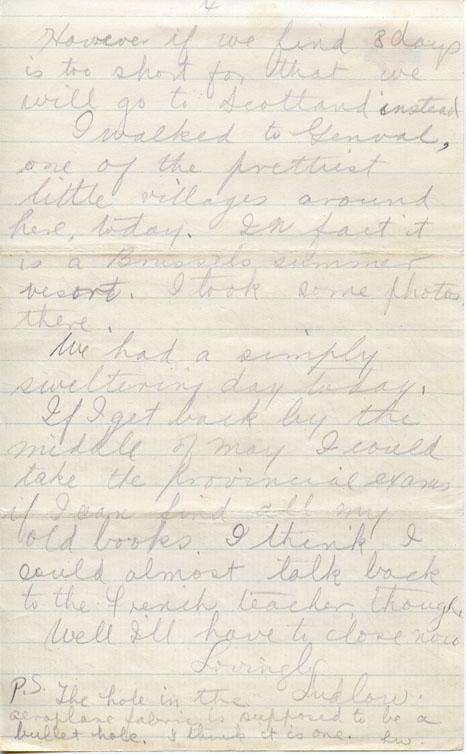 4
However if we find 8 days
is too short for that we
will go to Scotland instead
I walked to Genval,
one of the prettiest
little villages around
here, today. In fact it
is a Brussels summer
resort. I took some photos
there.
We had a simply
sweltering day today.
If I get back by the
middle of May I could
take the provincial exams
if I can find all my
old books I think I
could almost talk back
to the French teacher, though.
Well I'll have to close now
Lovingly
Ludlow.
P.S. The hole in the
aeroplane fabric is supposed to be a
bullet hole. I think it is one.